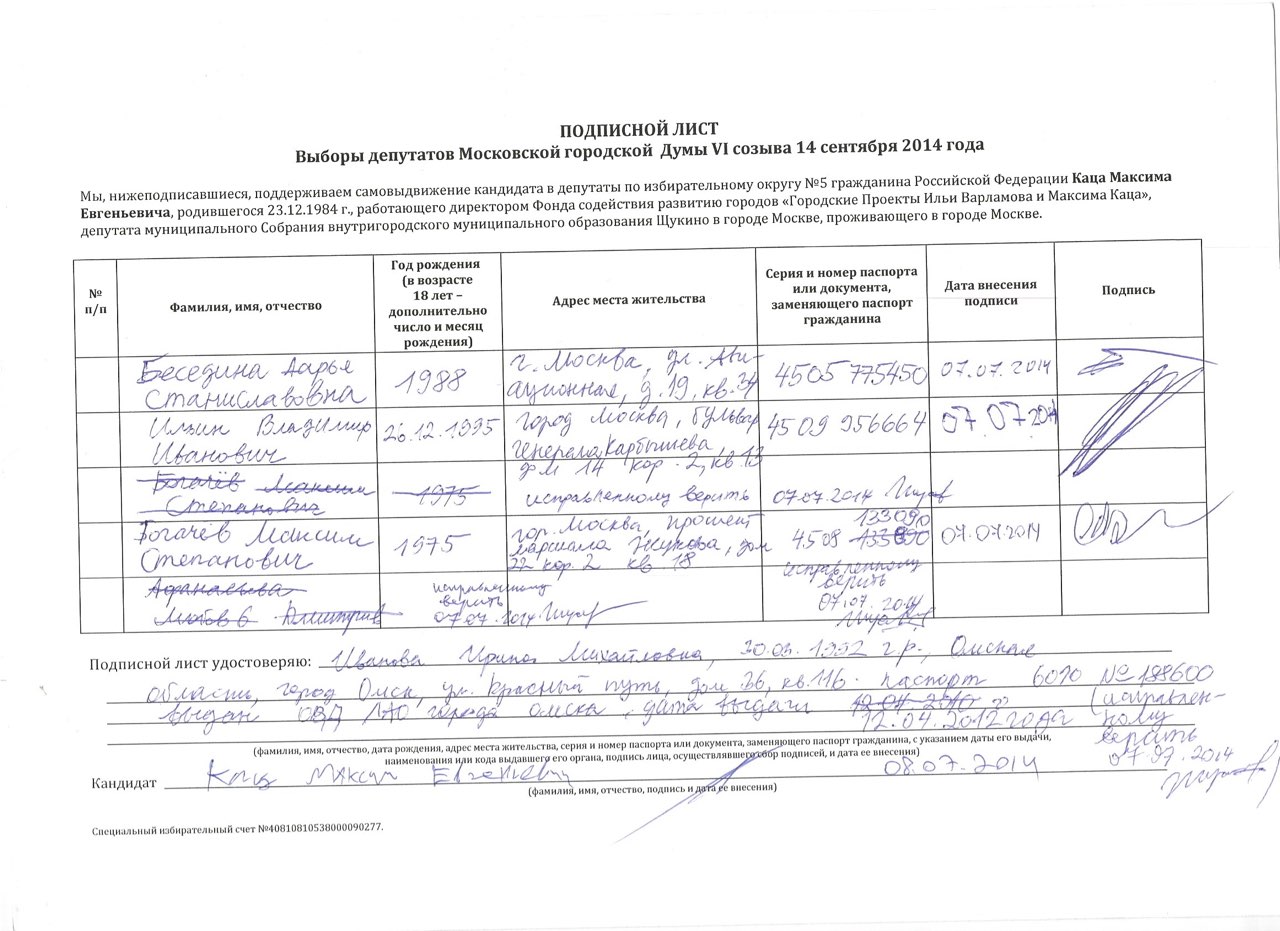 ПОДПИСНОЙ ЛИСТ
Выборы депутатов Московской городской Думы VI созыва 14 сентября 2014 года
Мы, нижеподписавшиеся, поддерживаем самовыдвижение кандидата в депутаты по избирательному округу №5 гражданина Российской Федерации Каца Максима
Евгеньевича, родившегося 23.12.1984 г., работающего директором Фонда содействия развитию городов «Городские Проекты Ильи Варламова и Максима Каца»,
депутата муниципального Собрания внутригородского муниципального образования Щукино в городе Москве, проживающего в городе Москве.
№
п/п
Фамилия, имя, отчество
Год рождения
(в возрасте
18 лет –
дополнительно
число и месяц
рождения)
Адрес места жительства
Серия и номер паспорта
или документа,
заменяющего паспорт
гражданина
Дата внесения
подписи
Подпись
Беседина Дарья
Станиславовна
1988
г. Москва, ул. Ави-
ационная, д. 19, кв. 34
4505 775450
07.07.2014
Ильин Владимир
Иванович
26.12.1995
город Москва, бульвар
Генерала Карбышева
дом 14 кор. 2, кв. 13
4509 956664
07.07.2014
Богачёв Максим
Степанович
1975
исправленному верить
07.07.2014
Богачёв Максим
Степанович
1975
гор. Москва, проспект
маршала Жукова, дом
22 кор. 2 кв. 18
133090
4508
исправленному
верить
07.07.2014
07.07.2014
Афанасьева
Любовь Дмитрив
исправленному
верить
07.07.2014
Подписной лист удостоверяю: Иванова Ирина Михайловна, 30.03.1992 г.р., Омская
область, город Омск, ул. Красный путь, дом 36, кв. 116. паспорт 6010 № 198600
выдан ОВД ЛАО города Омска, дата выдачи 12.04.2010
12.04.2012 года
(исправлен-
ному
верить
07.07.2014
(фамилия, имя, отчество, дата рождения, адрес места жительства, серия и номер паспорта или документа, заменяющего паспорт гражданина, с указанием даты его выдачи,
наименования или кода выдавшего его органа, подпись лица, осуществлявшего сбор подписей, и дата ее внесения)
Кандидат Кац Максим Евгеньевич 08.07.2014
(фамилия, имя, отчество, подпись и дата ее внесения)
Специальный избирательный счет №40810810538000090277.